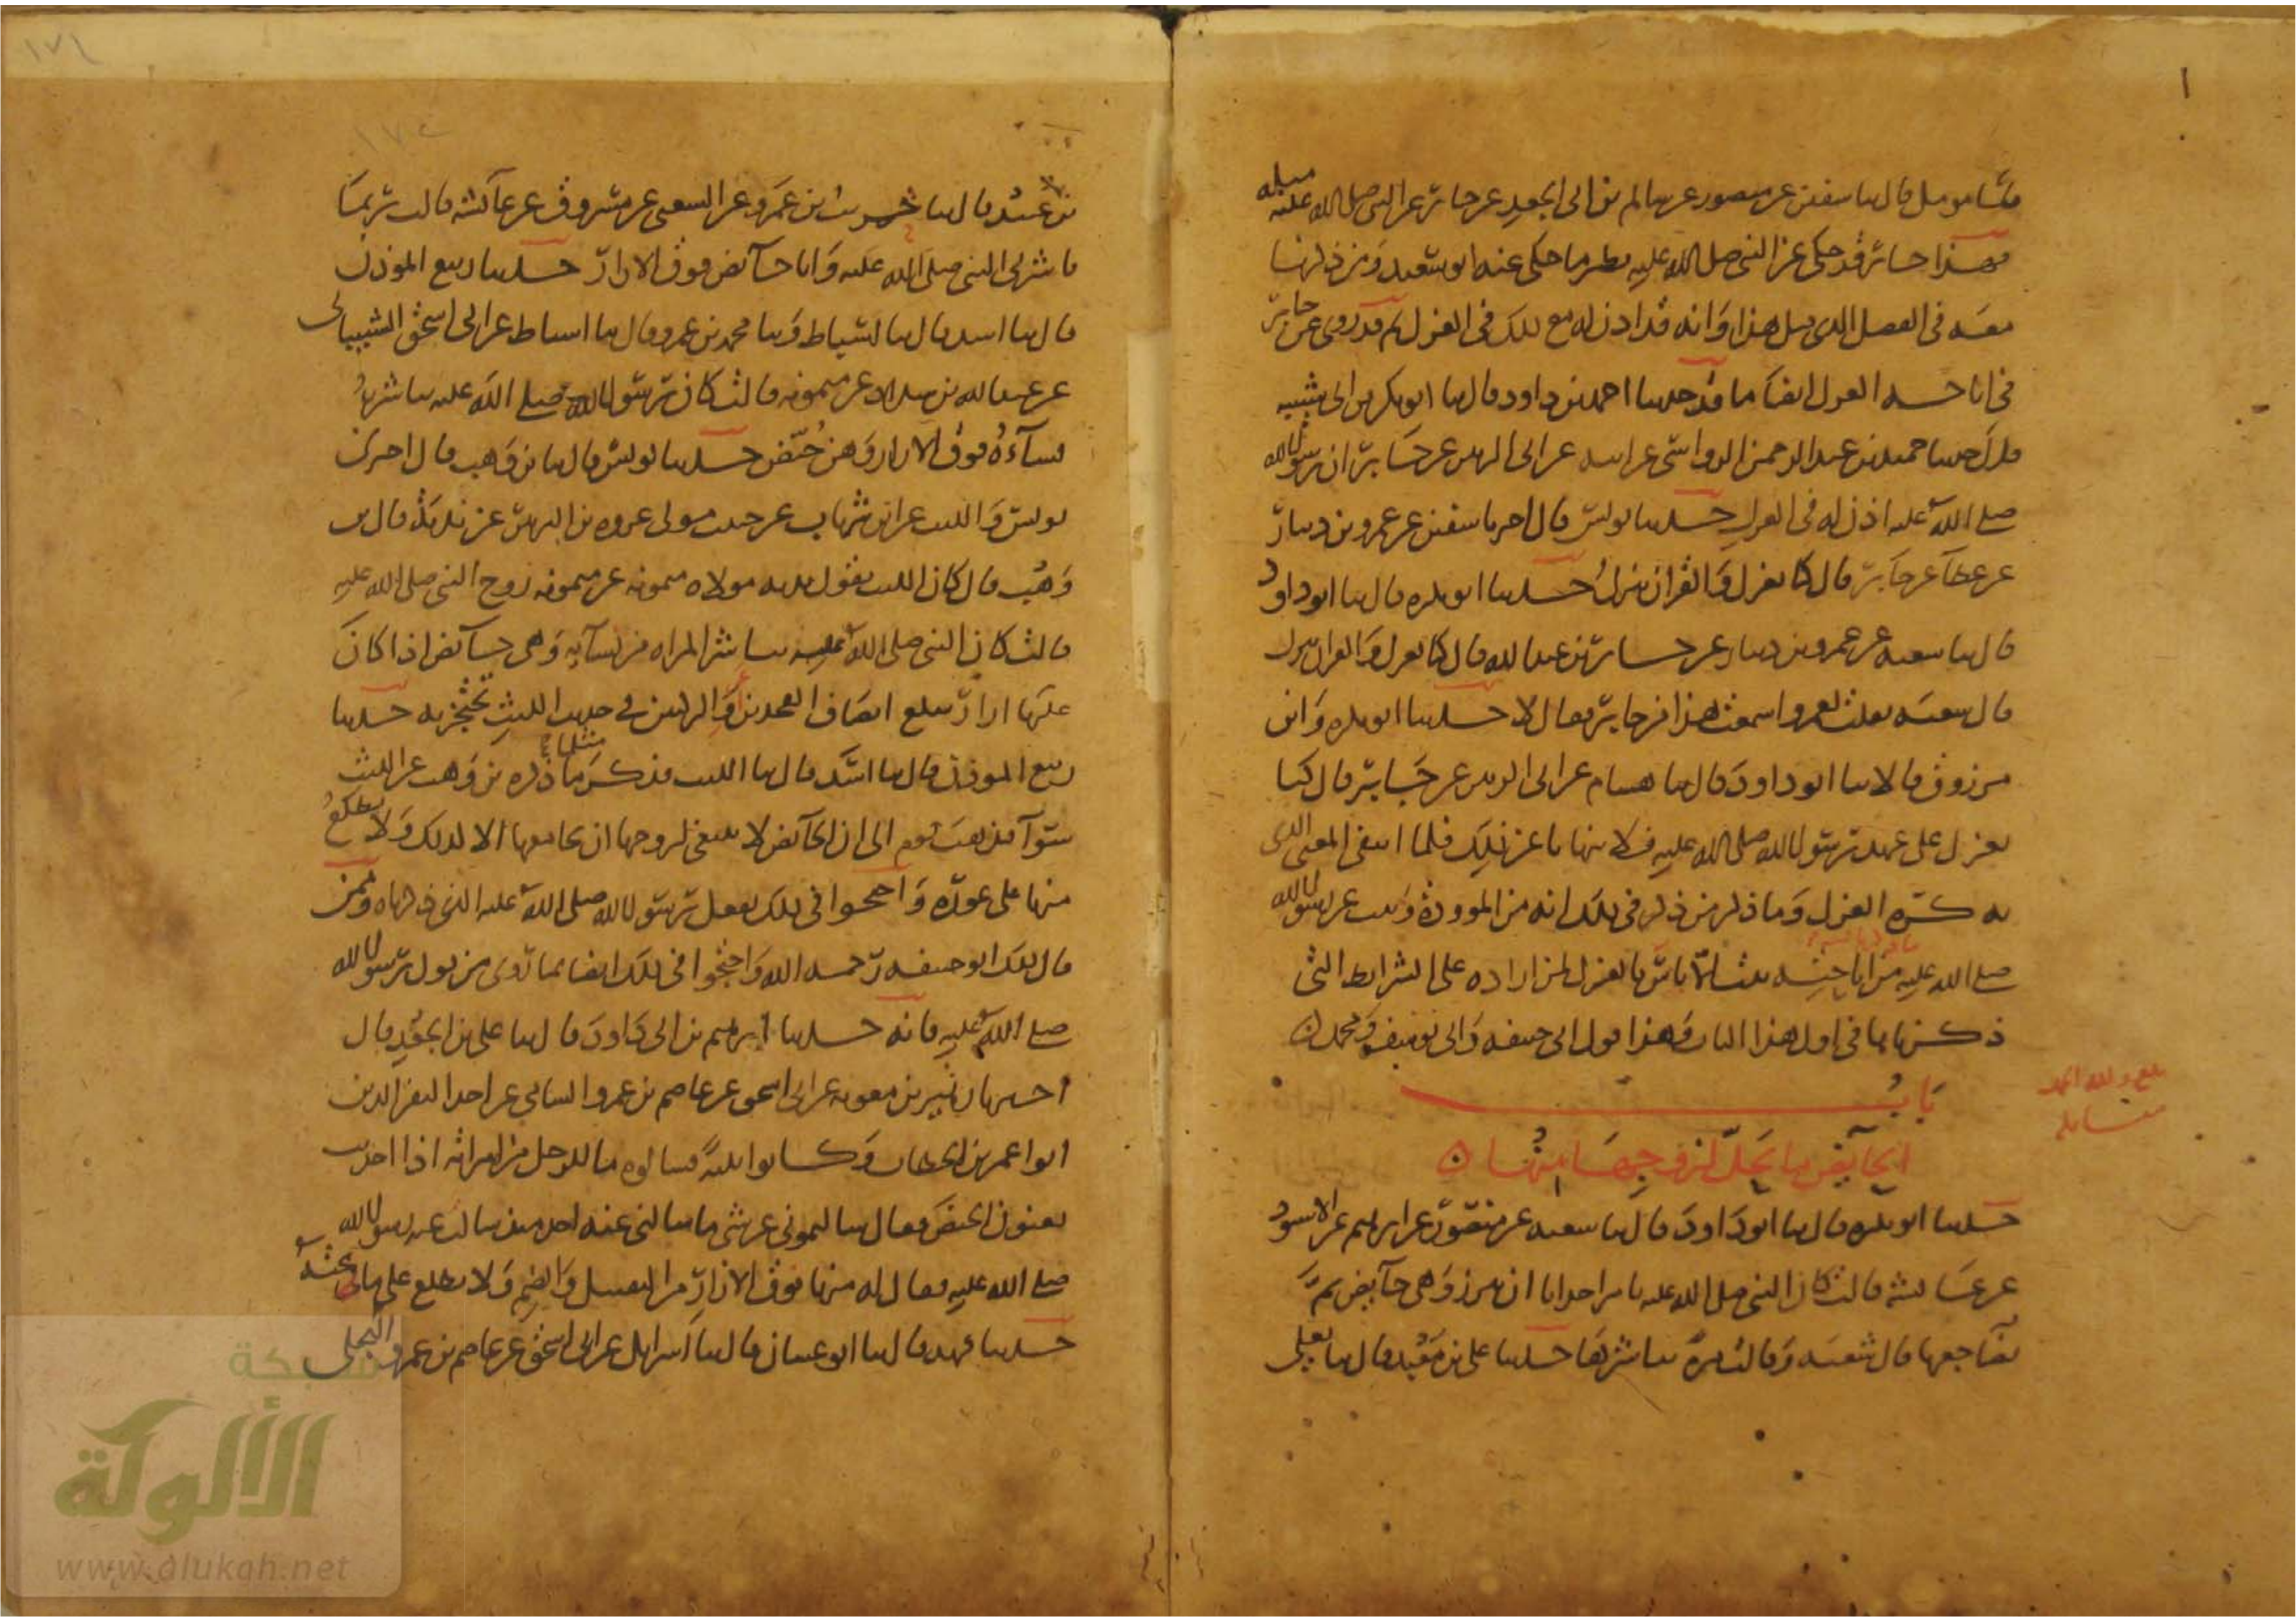 ثنا مومل قال ثنا سفين عن منصور عن سالم بن ابى الجعد عن جابر عن النبى صلى الله عليه مثله
فهذا جابر قد حكى عن النبى صلى الله عليه نظير ما حكى عنه ابو سعيد ومن ذكرنا
معه فى الفصل الذى قبل هذا وانه قد اذن له مع ذلك فى العزل ثم قد روى عن جابر
فى اباحه العزل ايضا ما قد حدثنا احمد بن داود قال ثنا ابو بكر بن ابى شيبه
قال حدثنا حميد بن عبد الرحمن الرواسى عن ابيه عن ابى الزبير عن جابر ان رسول الله
صلى الله عليه اذن له فى العزل حدثنا يونس قال اخبرنا سفين عن عمرو بن دينار
عن عطا عن جابر قال كنا نعزل والقران ينزل حدثنا ابو بكره قال ثنا ابو داود
قال ثنا شعبه عن عمرو بن دينار عن جابر بن عبد الله قال كنا نعزل والقران ينزل
قال شعبه فقلت لعمرو اسمعت هذا من جابر فقال لا حدثنا ابو بكره وابن
مرزوق قالا ثنا ابو داود قال ثنا هشام عن ابى الزبير عن جابر قال كنا
نعزل على عهد رسول الله صلى الله عليه فلا ينهانا عن ذلك فلما انتفى المعنى الذى
به كره العزل وما ذكر من ذكر فى ذلك انه من الموودة وثبت عن رسول الله
صلى الله عليه من اباحته ثبت الا باس بالعزل لمن اراده على الشرايط التى
ذكرناها فى اول هذا الباب وهذا قول ابى حنيفه وابى يوسف ومحمد
بلغ ولله الحمد
مقابله
باب
الحآيض ما يحل لزوجها منها
حدثنا ابو بكره قال ثنا ابو داود قال ثنا شعبه عن منصور عن ابرهيم عن الاسود
عن عائشه قالت كان النبى صلى الله عليه يامر احدانا ان تتزر وهى حآيض ثم
يضاجعها قال شعبه وقالت مرة يباشرها حدثنا على بن معبد قال ثنا يعلى
بن عبيد قال ثنا حريث بن عمرو عن الشعبى عن مسروق عن عآئشه قالت ربما
باشرنى النبى صلى الله عليه وانا حآئض فوق الازار حدثنا ربيع الموذن
قال ثنا اسد قال ثنا اسباط وثنا محمد بن عمرو قال ثنا اسباط عن ابى اسحق الشيبانى
عن عبد الله بن شداد عن ميمونه قالت كان رسول الله صلى الله عليه يباشر
نسآءه فوق الازار وهن حُيّض حدثنا يونس قال ثنا بن وهب قال اخبرنى
يونس والليث عن ابن شهاب عن حبيب مولى عروه بن الزبير عن ندبة قال بن
وهب قال كان الليث يقول ندبه مولاه ميمونه عن ميمونه زوج النبى صلى الله عليه
قالت كان النبى صلى الله عليه يباشر المراه من نسآيه وهى حآئض اذا كان
عليها ازار يبلغ انصاف الفخذين او الركبتين فى حديث الليث تحتجز به حدثنا
ربيع الموذن قال ثنا اسد قال ثنا الليث فذكر مثل ما ذكره بن وهب عن الليث
سوآ فذهب قوم الى ان الحآئض لا ينبغى لزوجها ان يجامعها الا لذلك ولا يطلع
منها على عورة واحتجوا فى ذلك بفعل رسول الله صلى الله عليه الذى ذكرناه وممن
قال ذلك ابو حنيفه رحمه الله واحتجوا فى ذلك ايضا بما روى من قول رسول الله
صلى الله عليه فانه حدثنا ابرهيم بن ابى داود قال ثنا على بن الجعد قال
اخبرنا زهير بن معويه عن ابى اسحق عن عاصم بن عمرو الشامى عن احد النفر الذين
اتوا عمر بن الخطاب وكانوا ثلثة فسالوه ما للرجل من امراته اذا احدثت
يعنون الحيض فقال سالتمونى عن شى ما سالنى عنه احد منذ سالت عنه رسول الله
صلى الله عليه فقال له منها فوق الازار من التقبيل والضم ولا يطلع على ما تحته
حدثنا فهد قال ثنا ابو غسان قال ثنا اسرايل عن ابى اسحق عن عاصم بن عمرو البجلى
شبكة
الألوكة
www.alukah.net